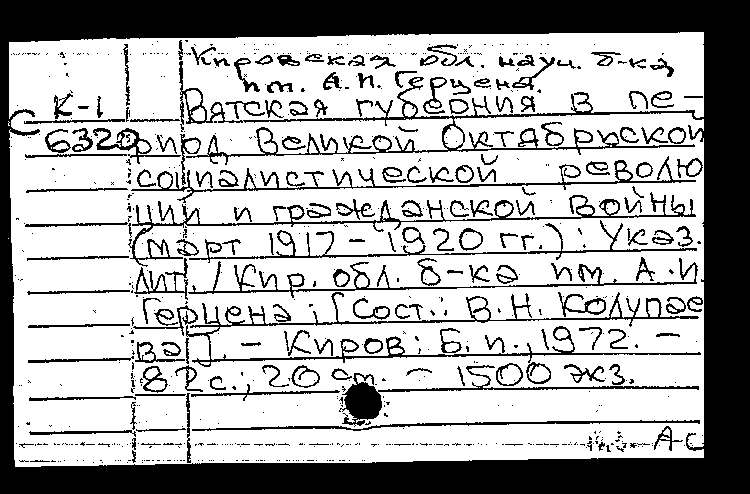 Кировская обл. науч. б-ка
им. А. И. Герцена.
К-1 Вятская губерния в пе-
С 6320 риод Великой Октябрьской
социалистической револю
ции и гражданской войны
(март 1917 - 1920 гг.) : Указ.
лит. / Кир. обл. б-ка им. А. И.
Герцена ; [Сост.: В. Н. Колупае
ва]. - Киров : Б. и., 1972. -
82 с. ; 20 см. - 1500 экз.
А-С